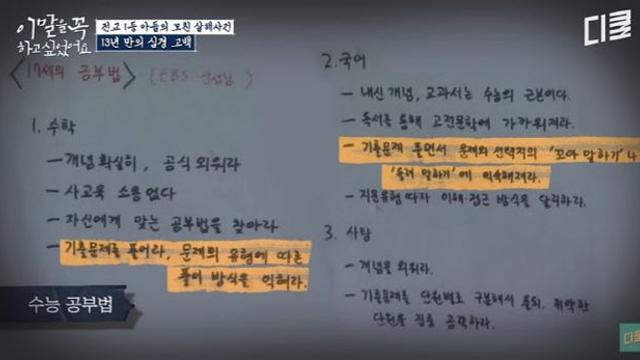 이 말을 꼭
하고 싶었어요
전교 1등 아들의 모친 살해사건
13년 만의 심경 고백
디글
<17세의 공부법> (EBS 선생님)
1. 수학
- 개념 확실히, 공식 외워라
- 사교육 소용없다
- 자신에게 맞는 공부법을 찾아라
- 기출문제를 풀어라, 문제의 유형에 따른
풀이 방식을 익혀라.
2. 국어
- 내신 개념, 교과서는 수능의 근본이다.
- 독서를 통해 고전문학에 가까워져라.
- 기출문제 풀면서 문제와 선택지의 '꼬아 말하기' 나
'돌려 말하기'에 익숙해져라.
- 지문유형 따라 이해·접근 방식을 달리하라.
3. 사탐
- 개념을 외워라.
- 기출문제를 단원별로 구분해서 풀되, 취약한
단원을 집중 공략하라.
수능 공부법
디글